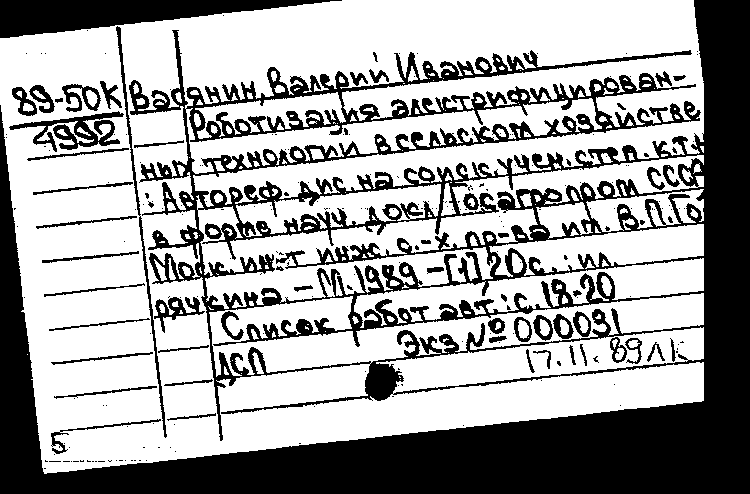 89-50К Васянин, Валерий Иванович
4992 Роботизация электрифицирован-
ных технологий в сельском хозяйстве
: Автореф. дис. на соиск. учен. степ. к.т.н
в форме науч. докл/Госагропром СССР
Моск. ин-т инж. с.-х. пр-ва им. В.П.Го
рячкина. - М. 1989. - [1] 20с. : ил.
Список работ авт.: с. 18-20
ДСП Экз № 000031
17.11.89 ЛК
5